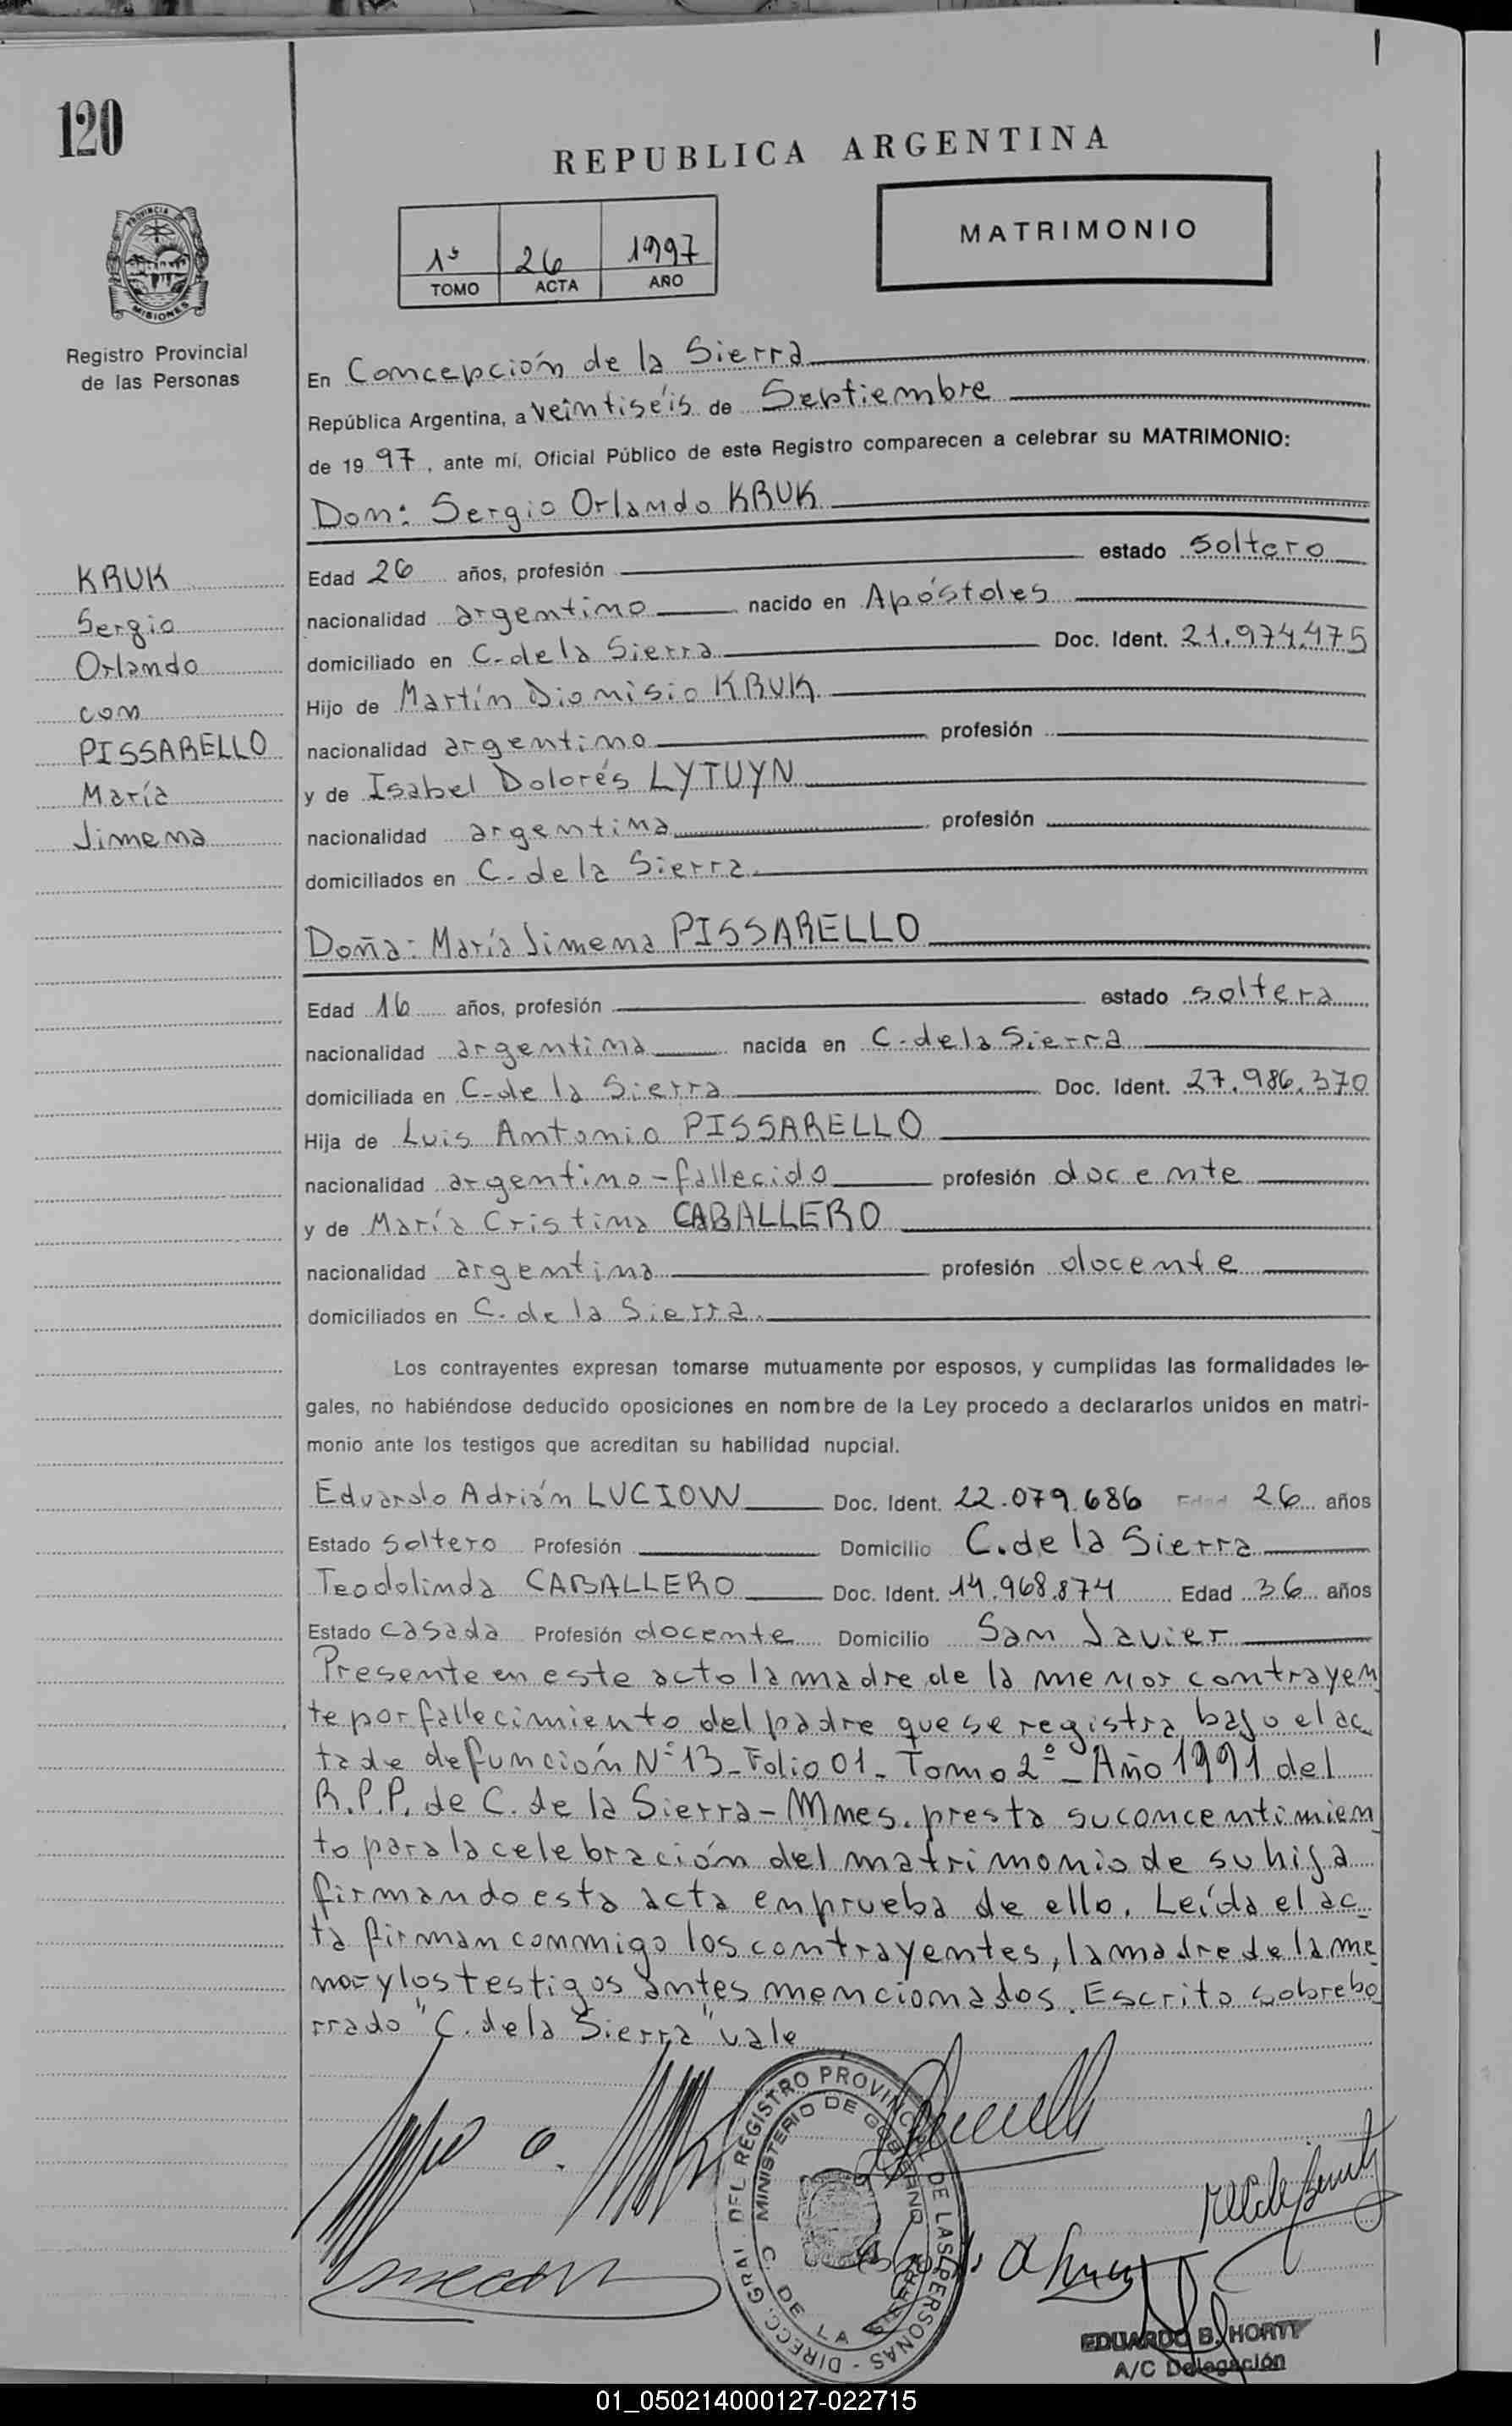 120
REPUBLICA ARGENTINA
1º 26 1997
TOMO ACTA AÑO
MATRIMONIO
PROVINCIA DE
MISIONES
Registro Provincial
de las Personas
En Concepción de la Sierra
República Argentina, a veintiséis de Septiembre
de 1997, ante mí, Oficial Público de este Registro comparecen a celebrar su MATRIMONIO:
Don: Sergio Orlando KRUK
Edad 26 años, profesión estado soltero
nacionalidad argentino nacido en Apóstoles
domiciliado en C. de la Sierra Doc. Ident. 21.974.475
Hijo de Martín Dionisio KRUK
nacionalidad argentino profesión
y de Isabel Dolorés LYTUYN
nacionalidad argentina profesión
domiciliados en C. de la Sierra.
KRUK
Sergio
Orlando
con
PISSARELLO
María
Jimena
Doña: María Jimena PISSARELLO
Edad 16 años, profesión estado soltera
nacionalidad argentina nacida en C. de la Sierra
domiciliada en C. de la Sierra Doc. Ident. 27.986.370
Hija de Luis Antonio PISSARELLO
nacionalidad argentino - fallecido profesión docente
y de María Cristina CABALLERO
nacionalidad argentina profesión docente
domiciliados en C. de la Sierra.
Los contrayentes expresan tomarse mutuamente por esposos, y cumplidas las formalidades le-
gales, no habiéndose deducido oposiciones en nombre de la Ley procedo a declararlos unidos en matri-
monio ante los testigos que acreditan su habilidad nupcial.
Eduardo Adrián LUCIOW Doc. Ident. 22.079.686 Edad 26 años
Estado soltero Profesión Domicilio C. de la Sierra
Teodolinda CABALLERO Doc. Ident. 14.968.874 Edad 36 años
Estado casada Profesión docente Domicilio San Javier
Presente en este acto la madre de la menor contrayen
te por fallecimiento del padre que se registra bajo el ac
ta de defunción Nº 13 - Folio 01 - Tomo 2º - Año 1991 del
R.P.P. de C. de la Sierra - Mnes. presta su concentimien
to para la celebración del matrimonio de su hija
firmando esta acta en prueba de ello. Leída el ac-
ta firman conmigo los contrayentes, la madre de la me
nor y los testigos antes mencionados. Escrito sobrebo
rrado "C. de la Sierra" vale
DIRECC. GRAL DEL REGISTRO PROVINCIAL DE LAS PERSONAS -
MINISTERIO DE GOBIERNO
C. DE LA SIERRA
EDUARDO B. HORTT
A/C Delegación
01_050214000127-022715